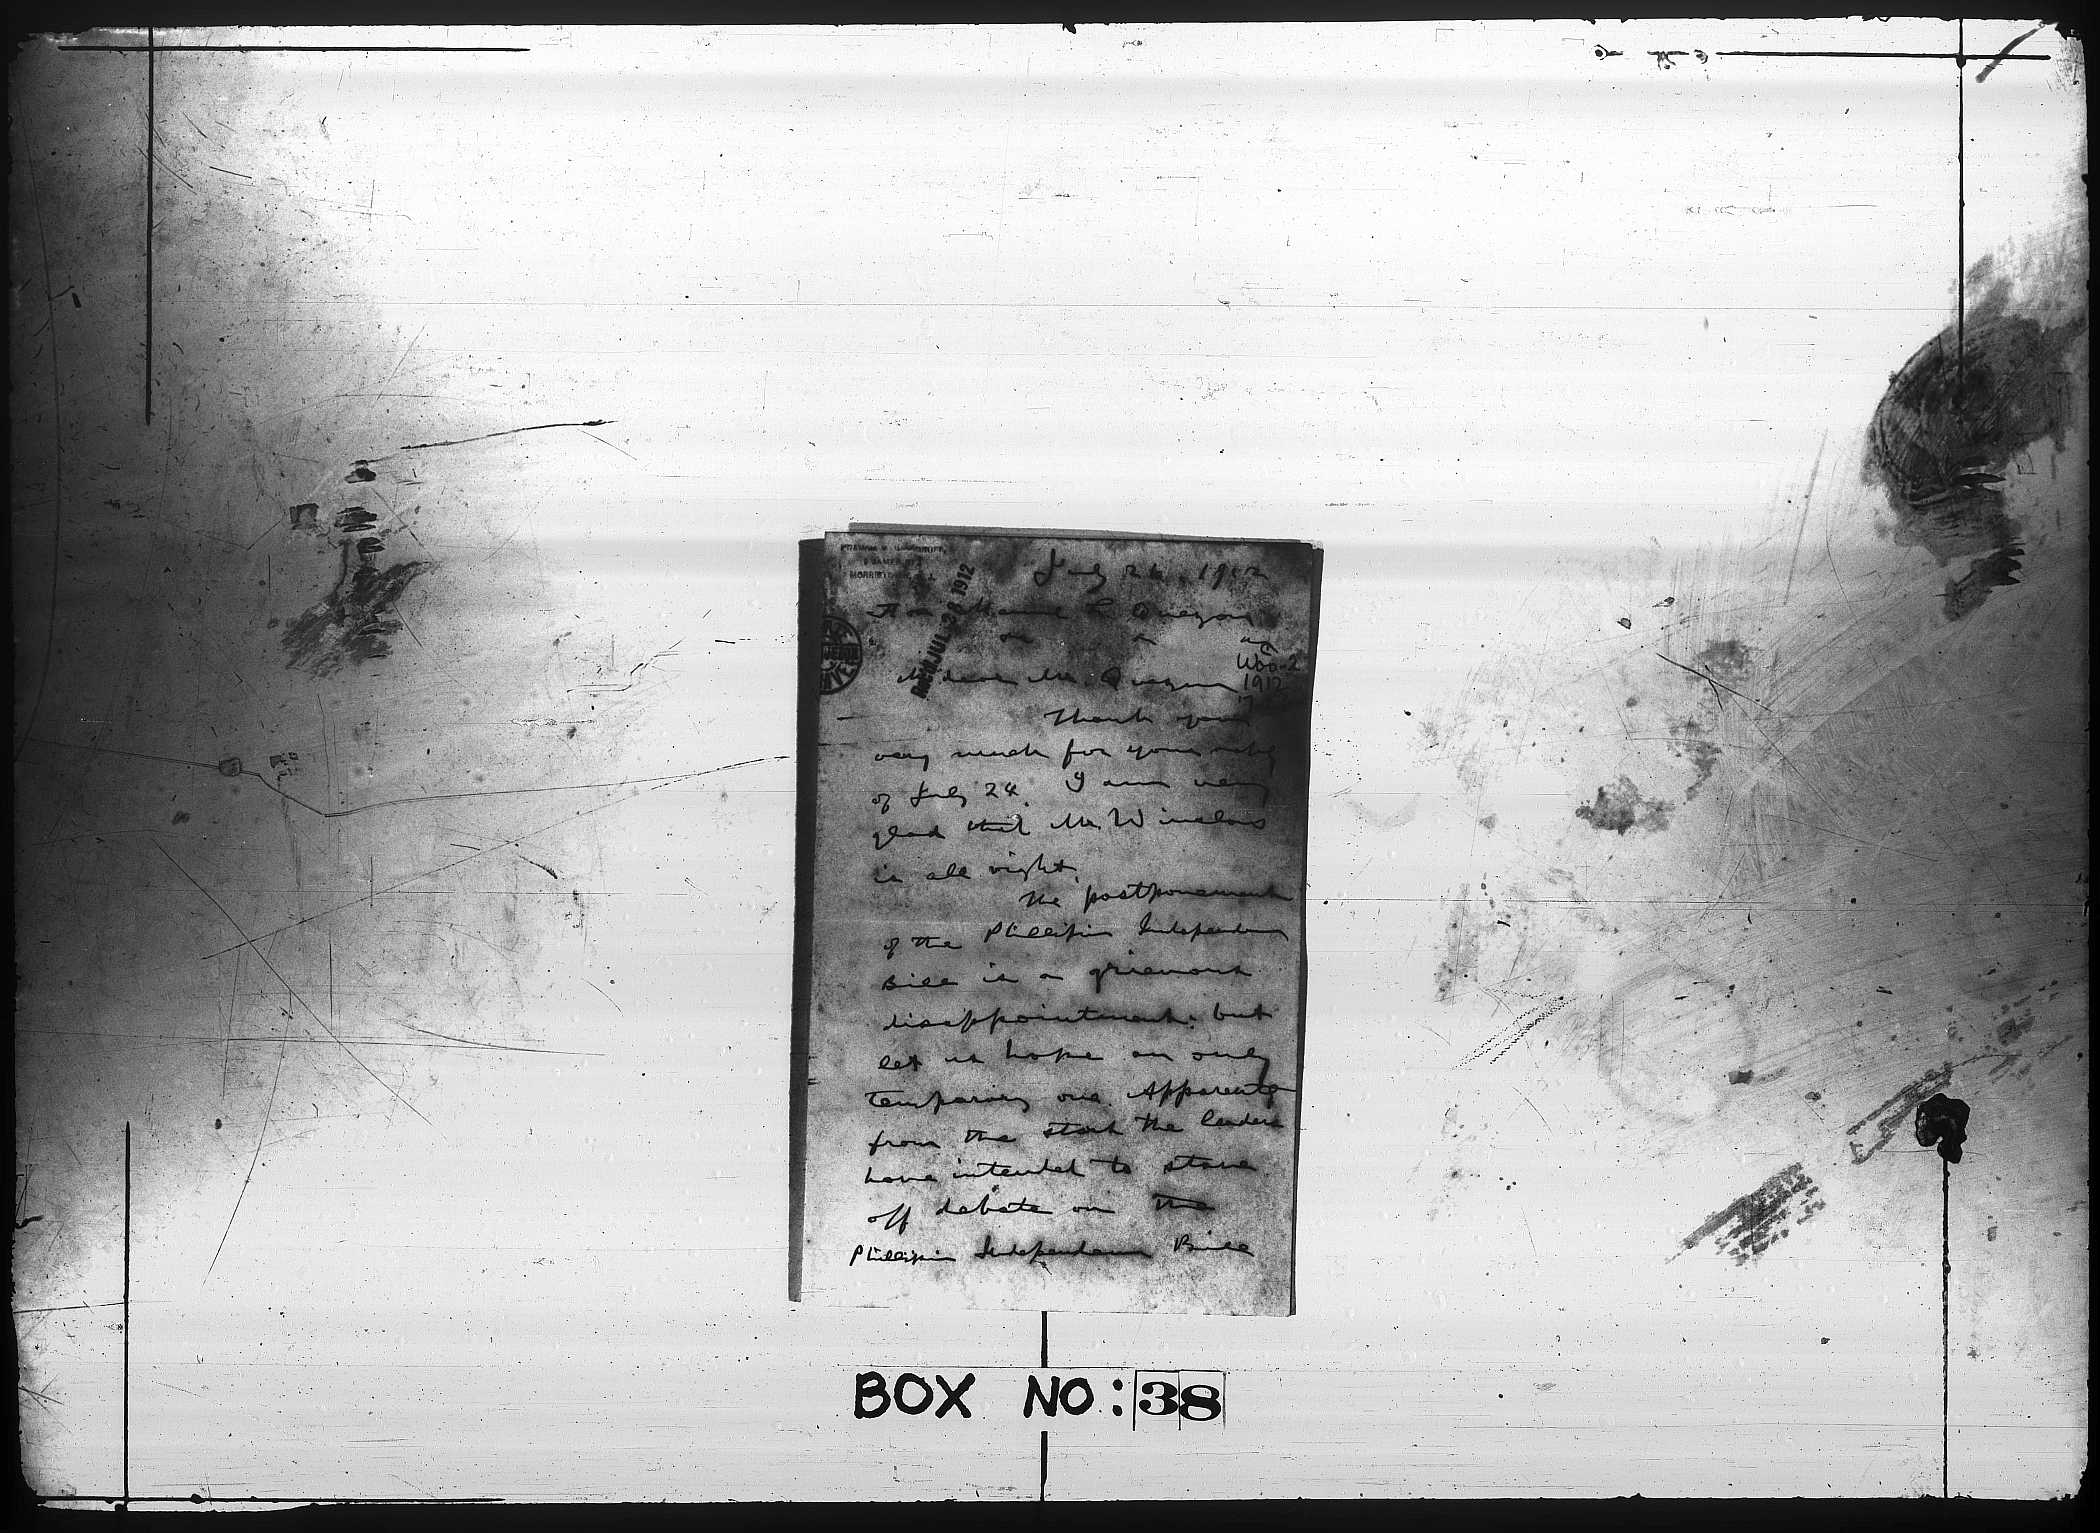 July 26, 1912
Hon Manuel L Quezon
Rec'd JUL 28 1912
Woo-2
1912
My dear Mr. Quezon
Thank you
very much for your reply
of July 24. I am very
glad that Mr. Winslow
is all right.
The postponement
of the Phillipin Independence
Bill is a grievous
disappointment: but
let us hope an only
temporary one. Apparently
from the start the leaders
have intended to stave
off debate on the
Phillipin Independence Bill
BOX NO: 38